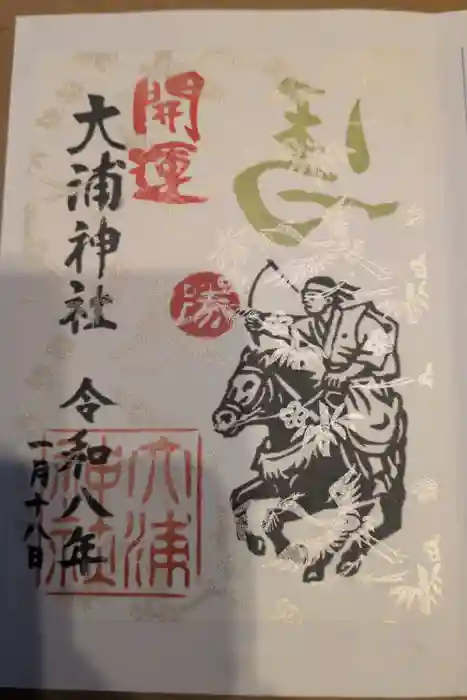 馬
開運
勝
大浦神社
令和八年
一月十八日
大浦
神社